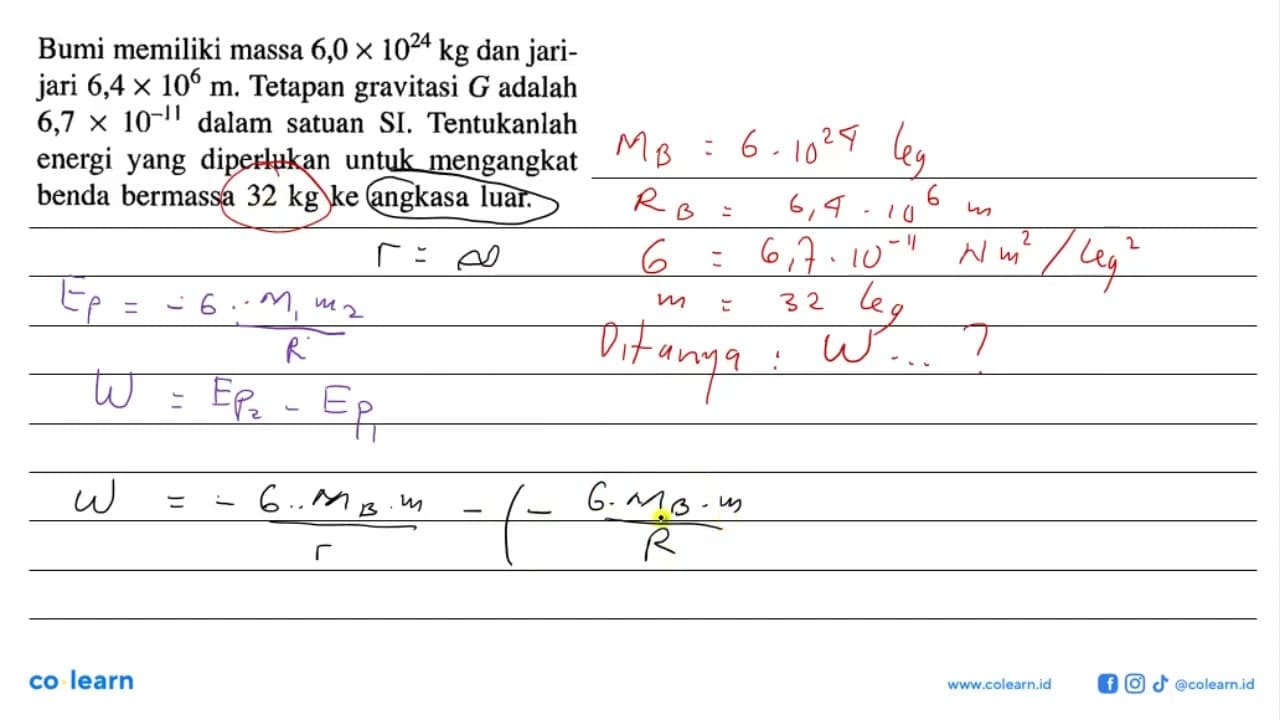 Bumi memiliki massa 6,0 × 10²⁴ kg dan jari-
jari 6,4 × 10⁶ m. Tetapan gravitasi G adalah
6,7 × 10⁻¹¹ dalam satuan SI. Tentukanlah
energi yang diperlukan untuk mengangkat
benda bermassa 32 kg ke angkasa luar.
M_B = 6 . 10²⁴ kg
R_B = 6,4 . 10⁶ m
G = 6,7 . 10⁻¹¹ N m² / kg²
m = 32 kg
Ditanya : W ... ?
r = ∞
Ep = - G . M₁ m₂ / R
W = Ep₂ - Ep₁
W = - G . M_B . m / r - ( - G . M_B . m / R
co learn
www.colearn.id
@colearn.id